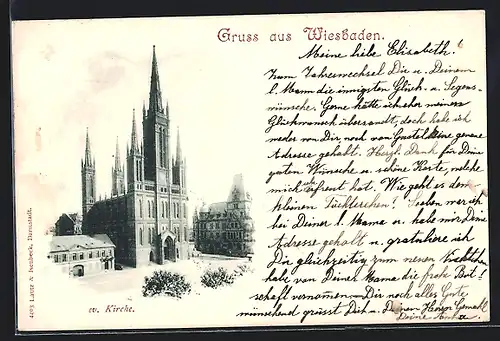 Gruss aus Wiesbaden.
Meine liebe Elisabeth!
Zum Jahreswechsel Dir u. Deinem
l. Mann die innigsten Glück- u. Segens-
wünsche. Gerne hätte ich eher meinen
Glückwunsch übersandt, doch habe ich
weder von Dir noch von genaue
Adresse gehabt. Herzl. Dank für Deine
guten Wünsche u. schöne Karte, welche
mich sehr erfreut hat. Wie geht es dem
kleinen Soeben war ich
bei Deiner l. Mama u. habe mir Deine
Adresse geholt u. gratuliere ich
Dir gleichzeitig zum neuen
habe von Deiner Mama die frohe Bot-
schaft vernommen. Dir noch alles Gute
wünschend grüsst Dich u. Deinen Herrn Gemahl
Deine
ev. Kirche.
4093 Lautz & Isenbeck, Darmstadt.